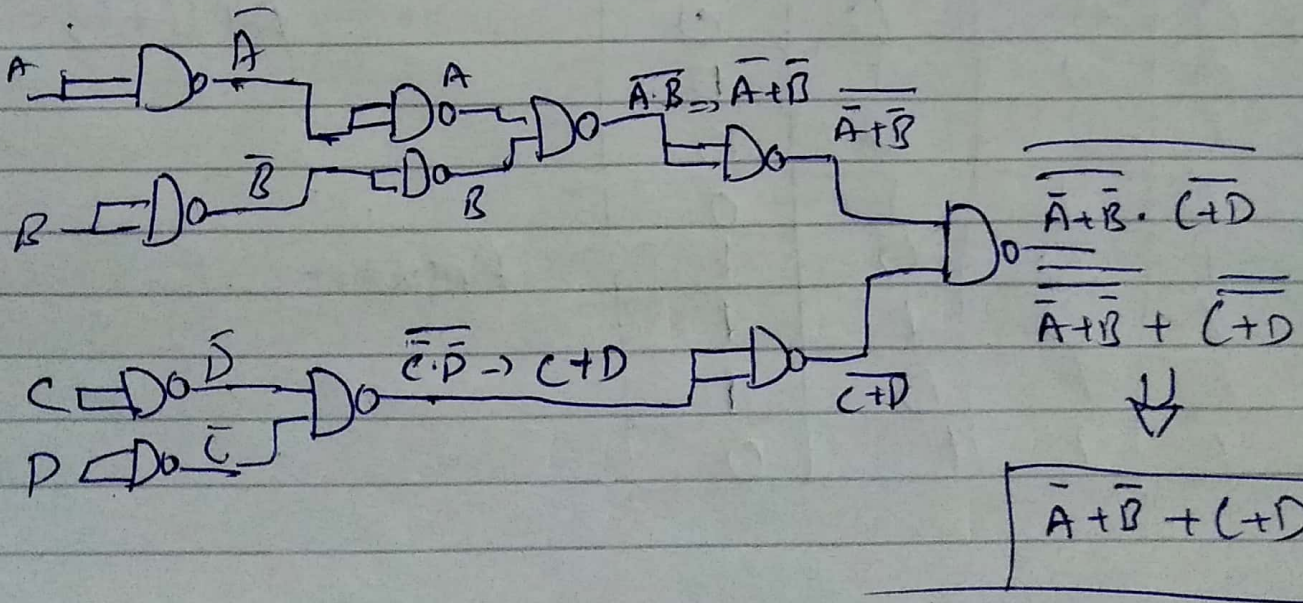 A A̅ A \overline{A·B} ⇒ A̅+B̅ \overline{A̅+B̅}
B B̅ B
\overline{\overline{A̅+B̅} · \overline{C+D}}
\overline{\overline{A̅+B̅}} + \overline{\overline{C+D}}
C D̅ \overline{C̅·D̅} → C+D \overline{C+D}
D C̅
⇓
A̅+B̅+C+D